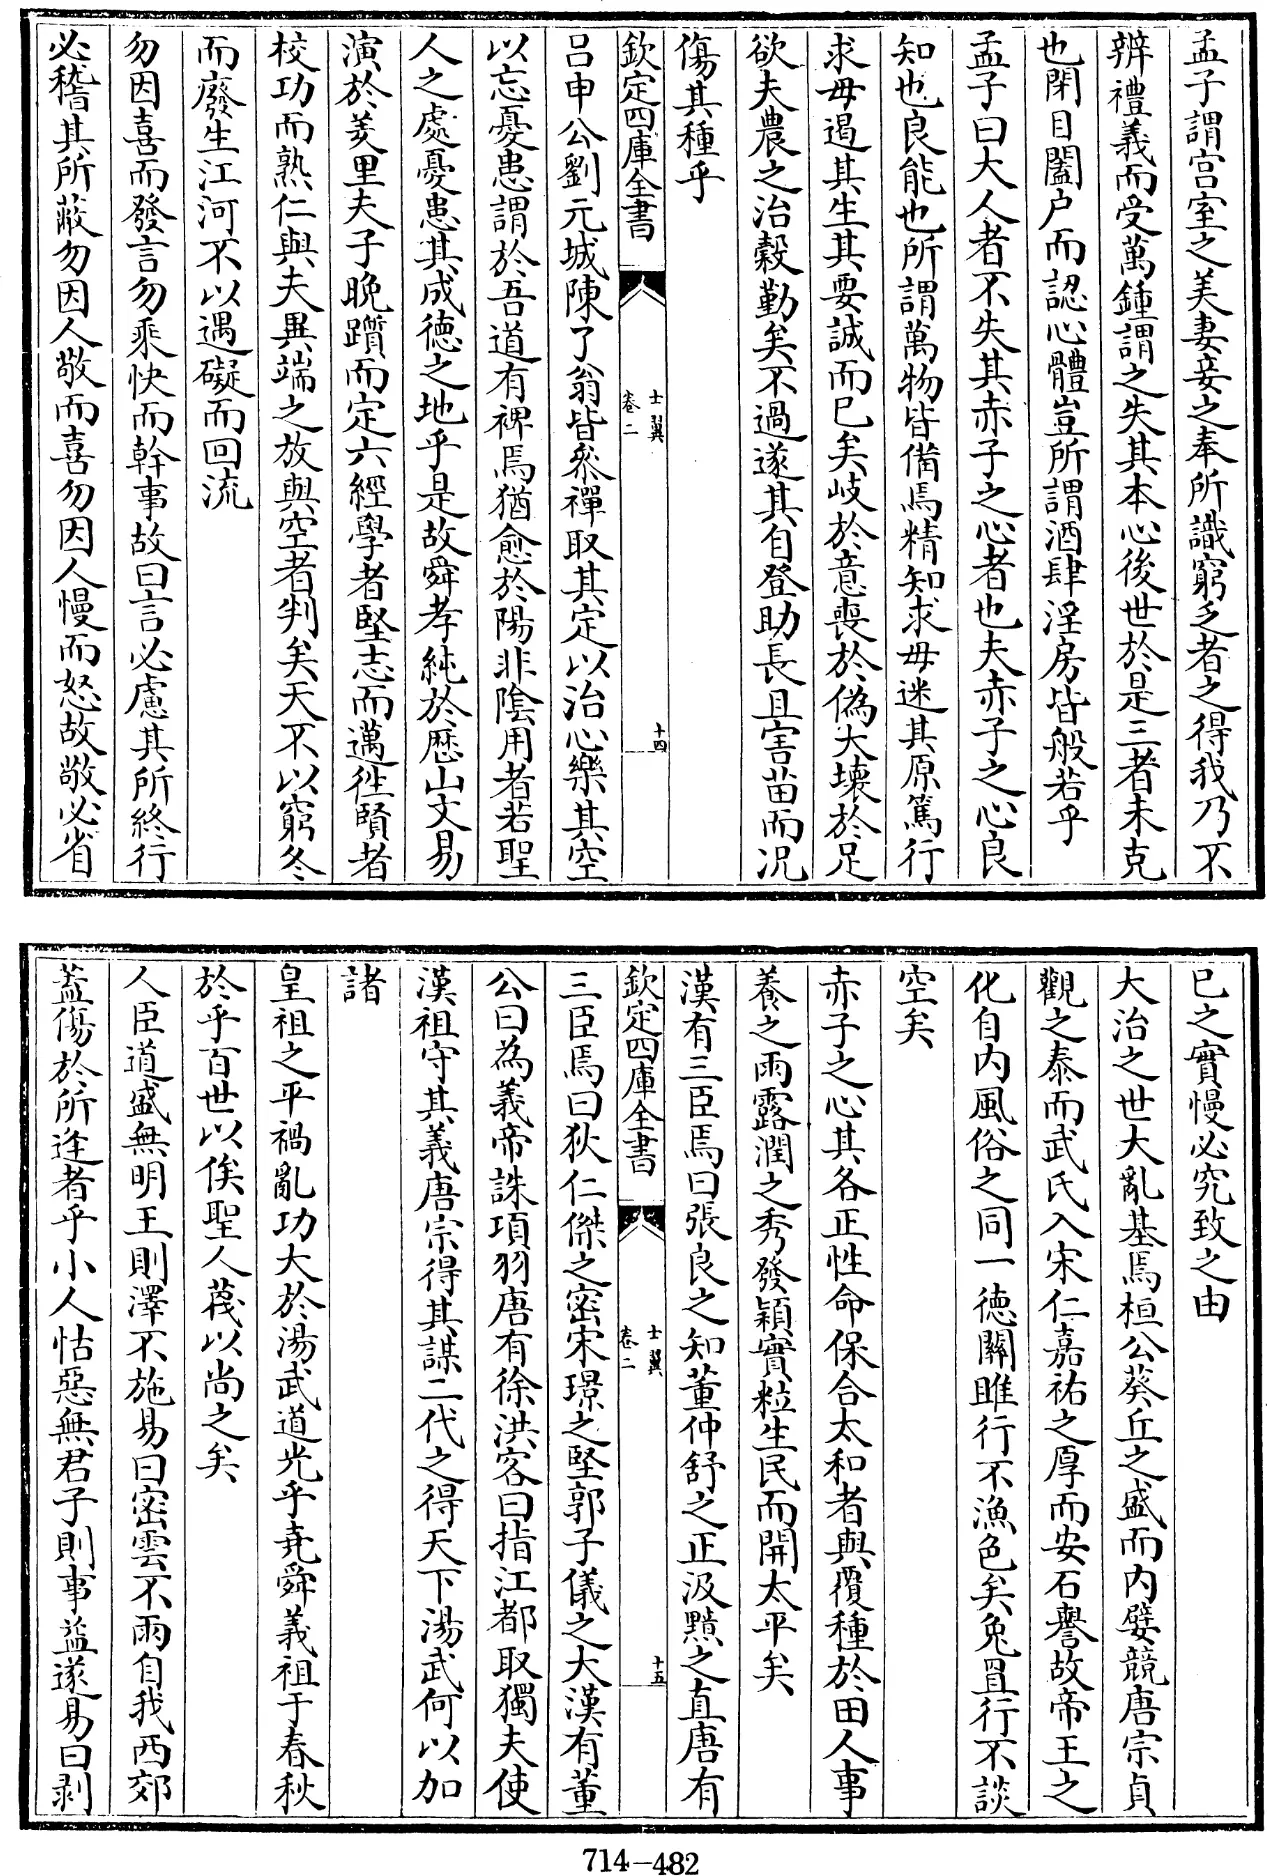 孟子謂宫室之美妻妾之奉所識窮乏者之得我乃不
辨禮義而受萬鍾謂之失其本心後世於是三者未克
也閉目闔户而認心體豈所謂酒肆淫房皆般若乎
孟子曰大人者不失其赤子之心者也夫赤子之心良
知也良能也所謂萬物皆備焉精知求毋迷其原篤行
求毋遏其生其要誠而已矣岐於意喪於偽大壊於足
欲夫農之治穀勤矣不過遂其自登助長且害苗而况
傷其種乎
欽定四庫全書
士翼
卷二
十四
吕申公劉元城陳了翁皆叅禪取其定以治心樂其空
以忘憂患謂於吾道有裨焉猶愈於陽非陰用者若聖
人之處憂患其成徳之地乎是故舜孝純於歴山文易
演於羑里夫子晩躓而定六經學者堅志而邁徃賢者
校功而熟仁與夫異端之放與空者判矣天不以窮冬
而廢生江河不以遇礙而回流
勿因喜而發言勿乘快而幹事故曰言必慮其所終行
必稽其所蔽勿因人敬而喜勿因人慢而怒故敬必省
已之實慢必究致之由
大治之世大亂基焉桓公葵丘之盛而内嬖競唐宗貞
觀之泰而武氏入宋仁嘉祐之厚而安石譽故帝王之
化自内風俗之同一徳關雎行不漁色矣兔罝行不談
空矣
赤子之心其各正性命保合太和者與覆種於田人事
養之雨露潤之秀發穎實粒生民而開太平矣
漢有三臣焉曰張良之知董仲舒之正汲黯之直唐有
欽定四庫全書
士翼
卷二
十五
三臣焉曰狄仁傑之密宋璟之堅郭子儀之大漢有董
公曰為義帝誅項羽唐有徐洪客曰指江都取獨夫使
漢祖守其義唐宗得其謀二代之得天下湯武何以加
諸
皇祖之平禍亂功大於湯武道光乎堯舜義祖于春秋
於乎百世以俟聖人蔑以尚之矣
人臣道盛無明王則澤不施易曰密雲不雨自我西郊
蓋傷於所逢者乎小人怙惡無君子則事益遂易曰剥
714-482